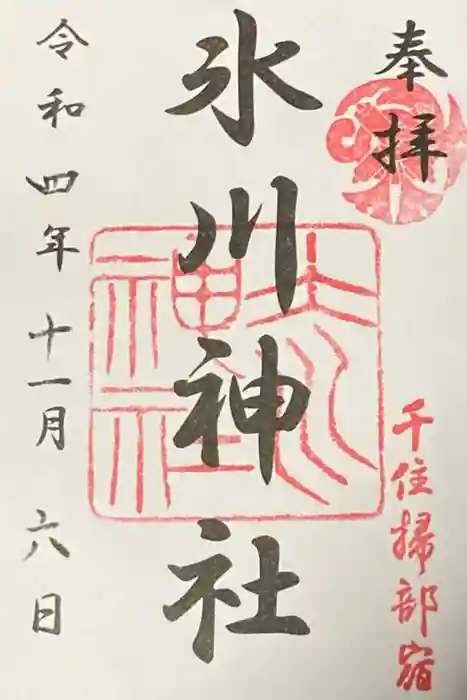 奉拝
千住掃部宿
氷川神社
令和四年十一月六日